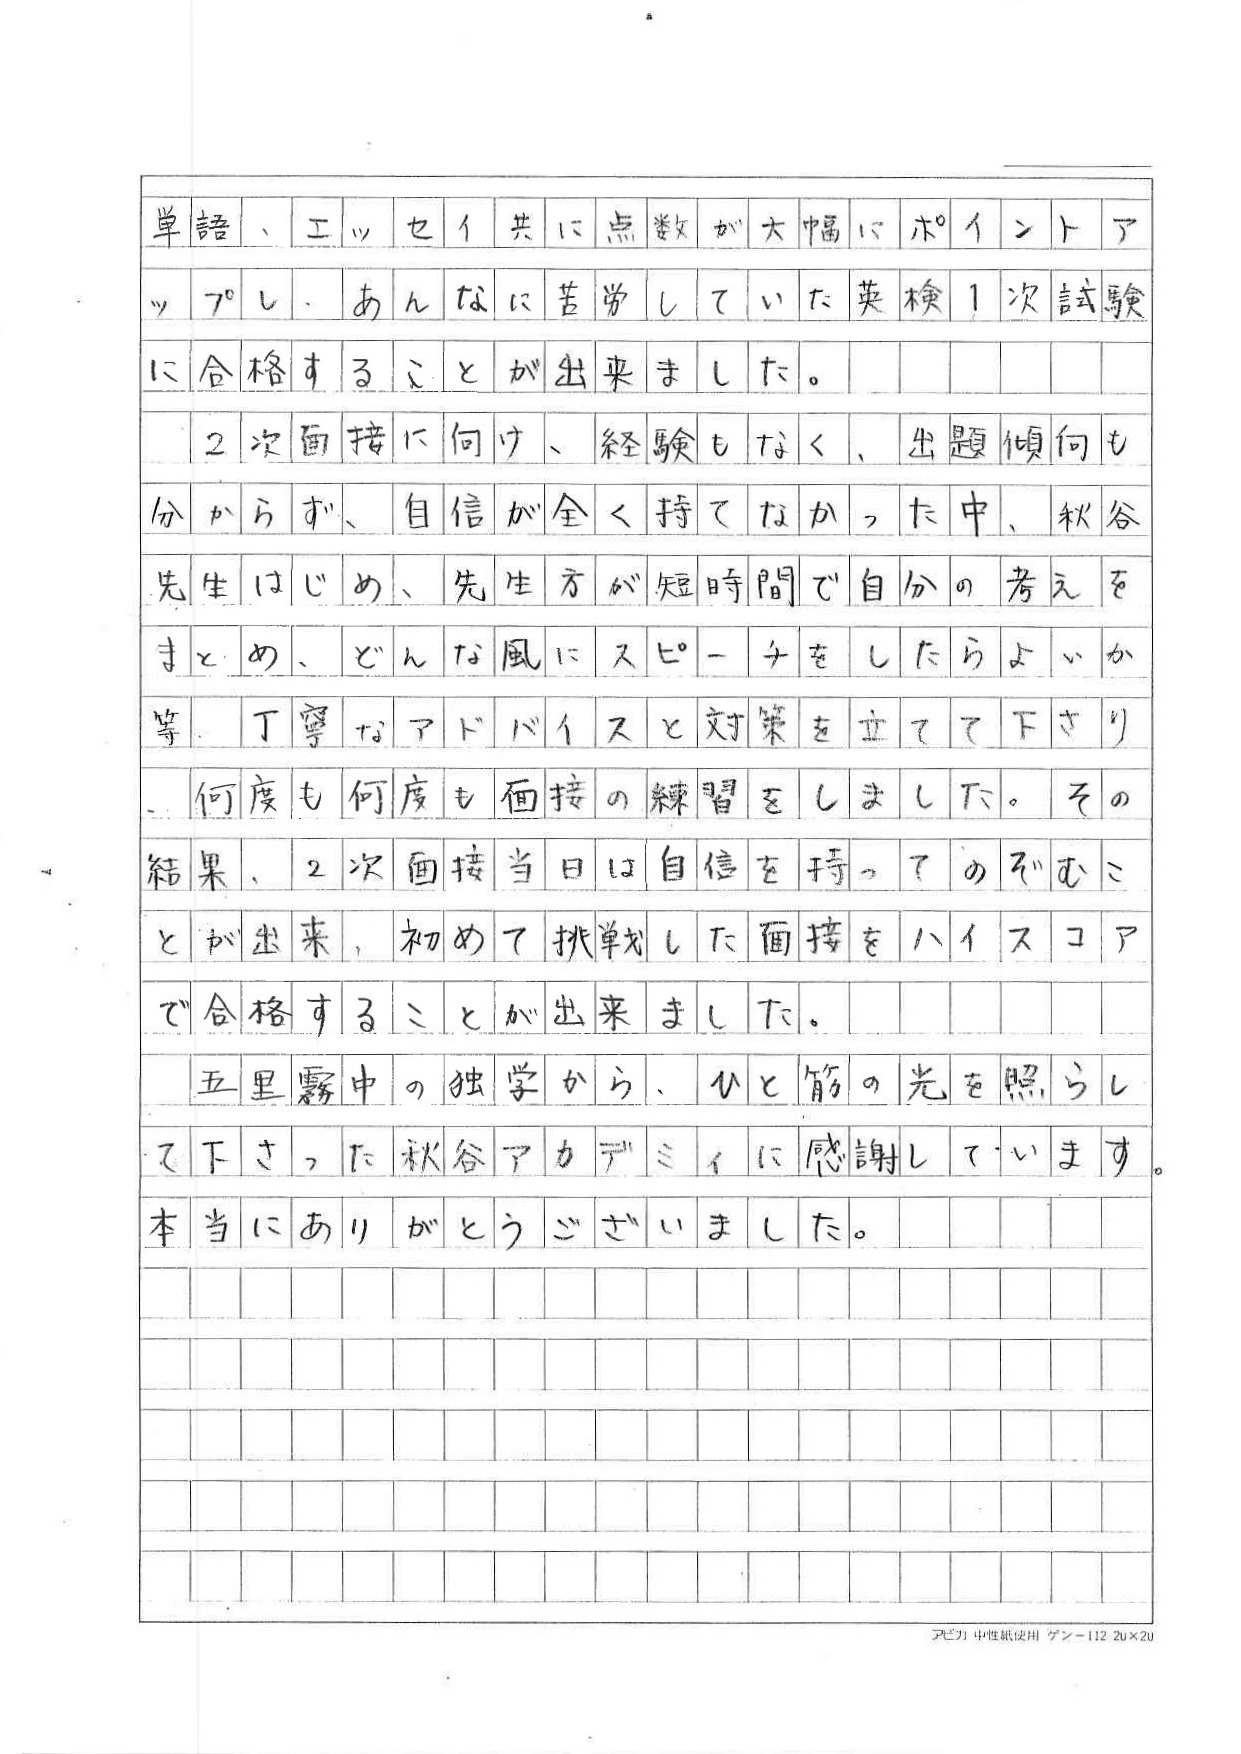 単語、エッセイ共に点数が大幅にポイントア
ップし、あんなに苦労していた英検1次試験
に合格することが出来ました。
　2次面接に向け、経験もなく、出題傾向も
分からず、自信が全く持てなかった中、秋谷
先生はじめ、先生方が短時間で自分の考えを
まとめ、どんな風にスピーチをしたらよいか
等、丁寧なアドバイスと対策を立てて下さり
、何度も何度も面接の練習をしました。その
結果、2次面接当日は自信を持ってのぞむこ
とが出来、初めて挑戦した面接をハイスコア
で合格することが出来ました。
　五里霧中の独学から、ひと筋の光を照らし
て下さった秋谷アカデミィに感謝しています。
本当にありがとうございました。
アピカ 中性紙使用 ゲンー112 20×20